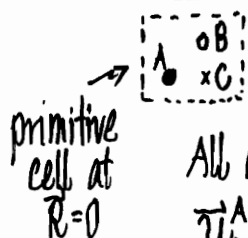 A
B
C
primitive
cell at
R⃗=0
All
A